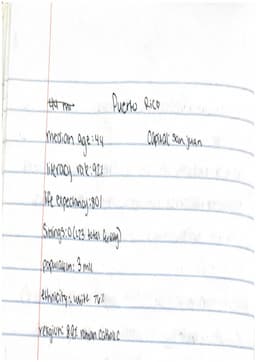 Puerto Rico
median age: 44 Capital: San Juan
literacy rate: 92%
life expectancy: 80
total
population: 3 mil
ethnicity: white
religion: 80% roman catholic